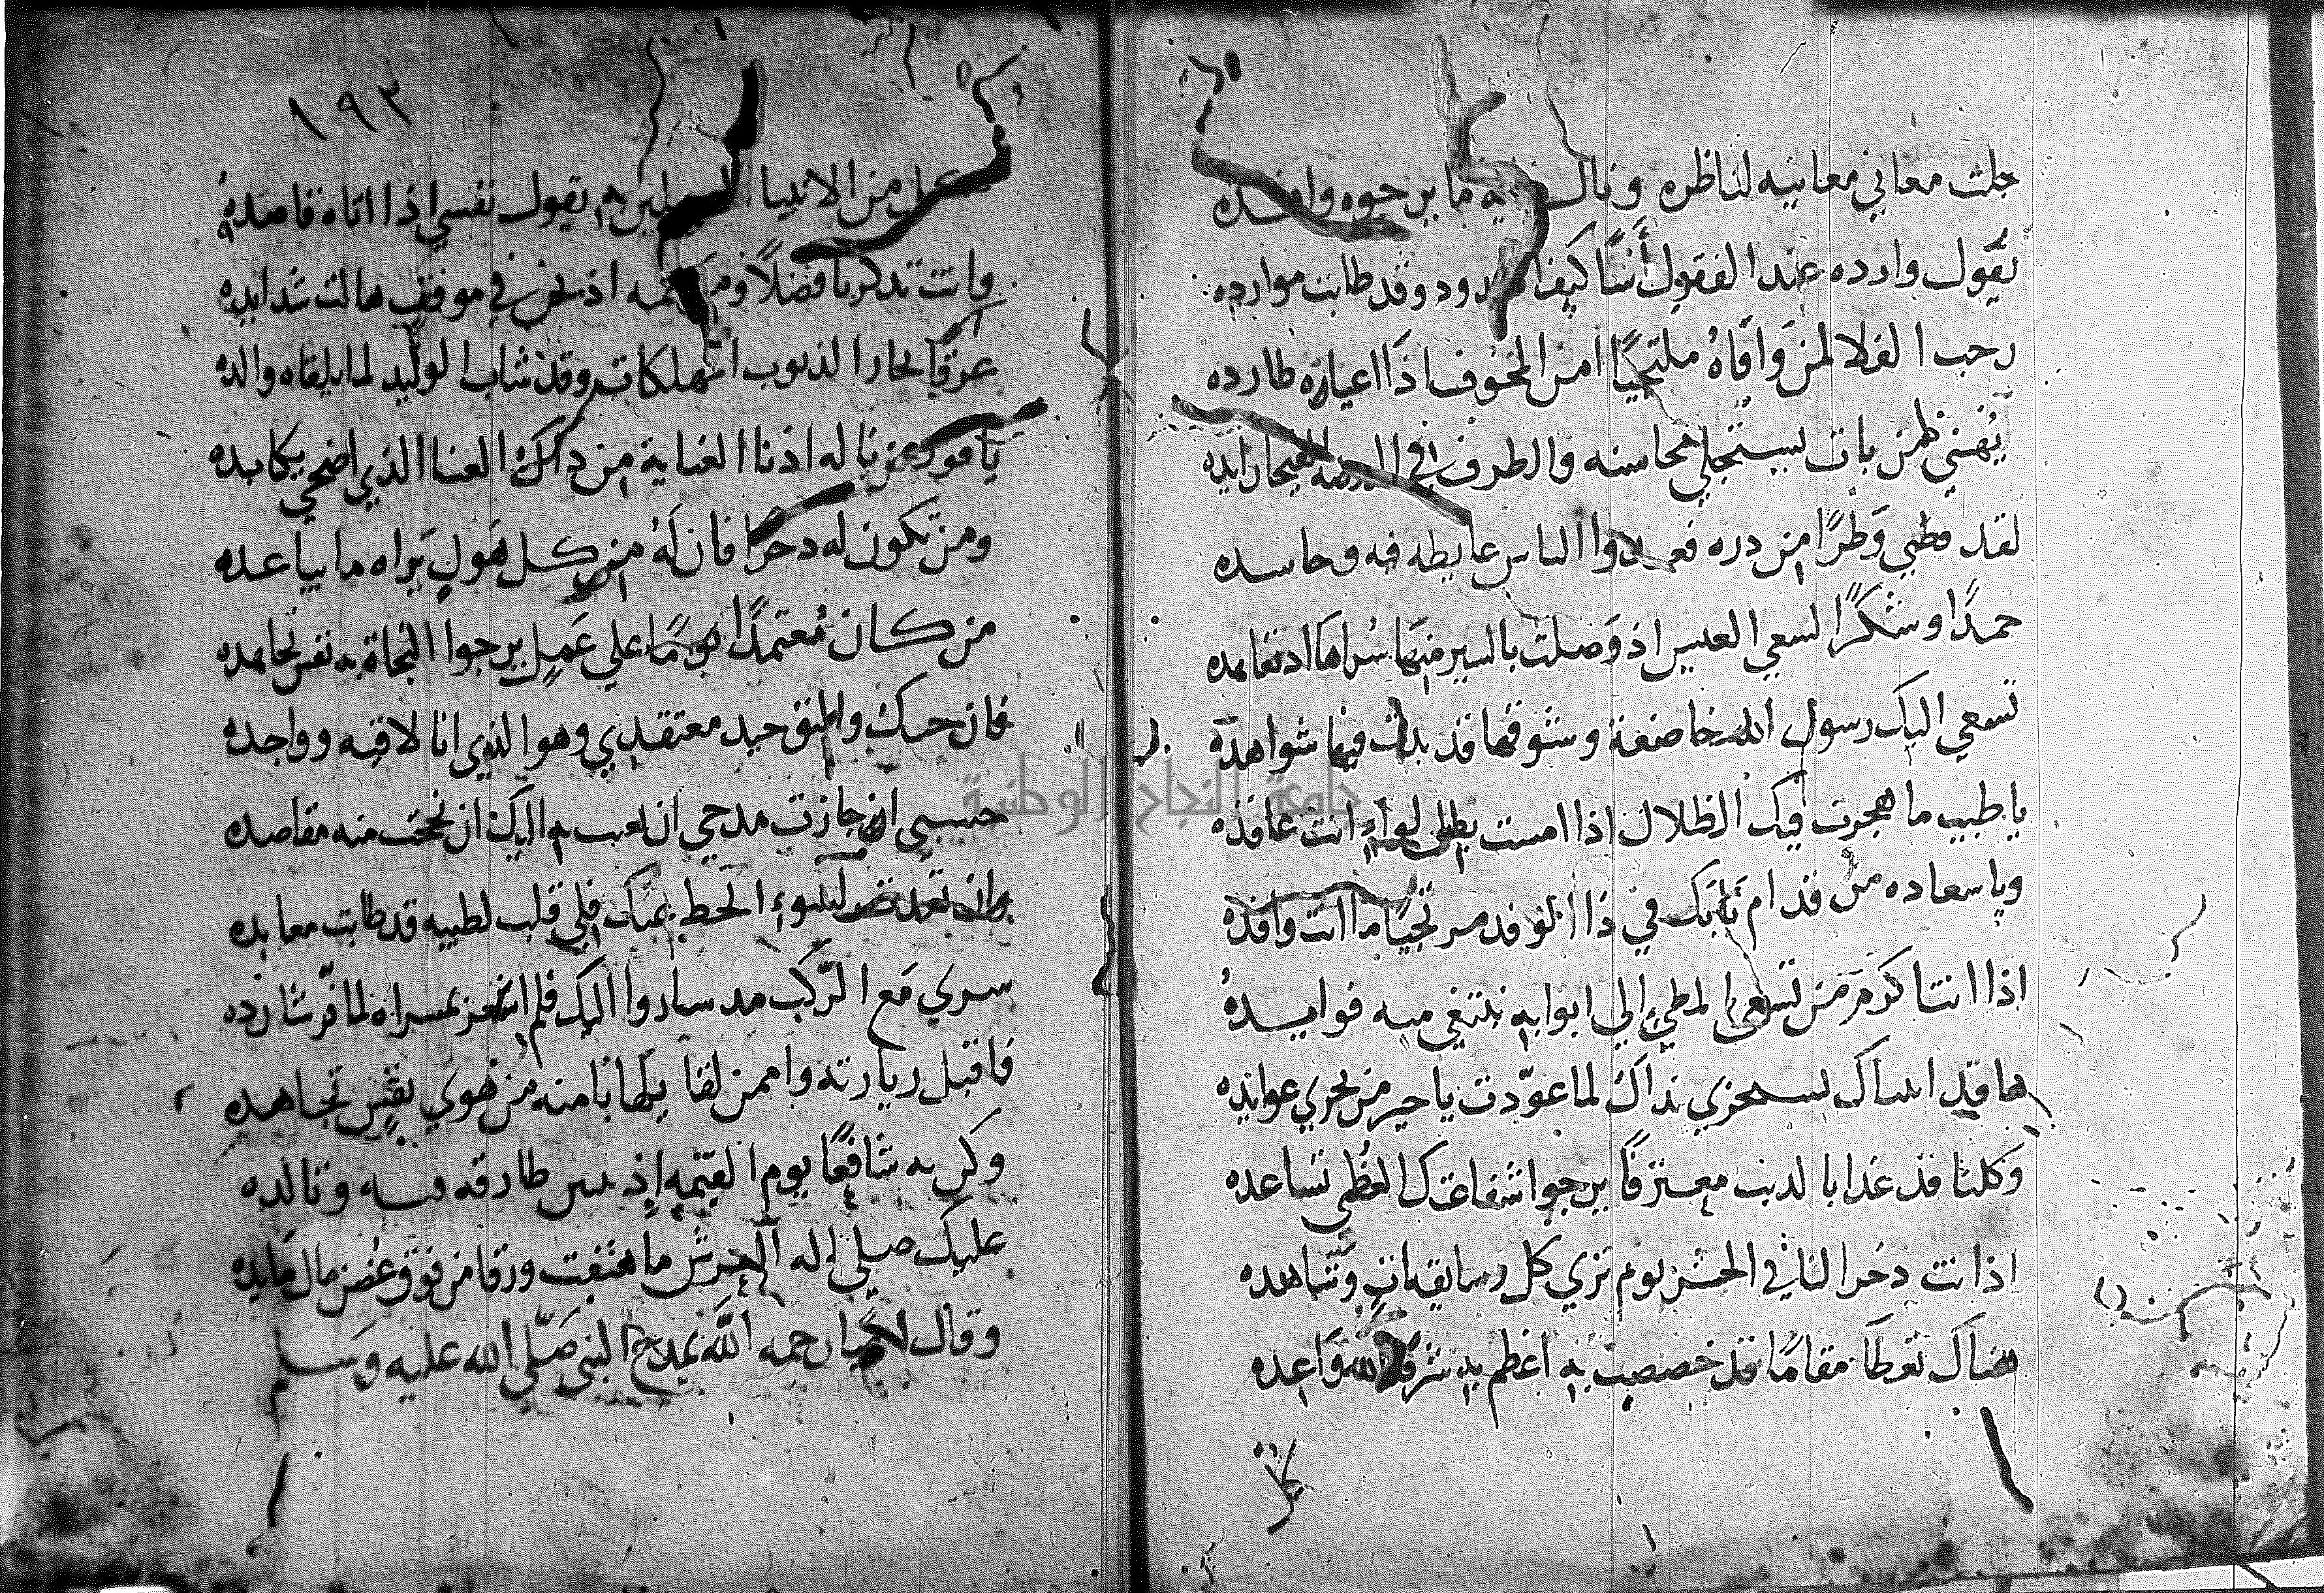 جلت معاني معانيه لناظره ونال فيه ما يرجوه وافده
يقول وارده عند القفول أسًا كيف الورود وقد طابت موارده
رحب الفلا لمن وافاهُ ملتجيًا امن المخوف اذا اعياه طارده
يُهني لمن بات يستجلي محاسنه والطرف في الروضة الفيحا رايده
لقد قضي وَطرًا من دره فغدوا الناس غابطه فيه وحاسده
حمدًا وشكرًا لسعي العيس اذ وَصلت بالسير منها سُراها اذ تعامده
تسعي اليك رسول الله خاضعة وشوقها قد بدات فيها شواهده
يا طيب ما هجرت فيك الظلال اذا امست بظل لواءٍ انت عاقده
ويا سعاده من قد ام بابك في ذا الوفد مرتجيًا ما انت وافده
اذا انتا كرم من تسعى المطي الي ابوابه نبتغي منه فوايدهُ
ها قد اتيناك نستجزي نداك لما عوّدت يا خير من يجري عوايده
وكلنا قد غدا بالذنب معترفًا يرجوا شفاعتك العظمي تساعده
اذ انت ذخر لنا في الحشر يوم تري كل وسايقه ات وشاهده
هناك تعطا مقامًا قد خصصت به اعظم به شرفًا الله واعده
١٩٣
وكل من الانبيا المرسلين به يقول نفسي اذا اتاه قاصدهُ
وانت تدكرنا فضلًا ومرحمه اذ نحن في موقف هالت شدايده
غرقا بحار الذنوب المهلكات وقد شاب الوليد لما يلقاه والده
يا فوز من ناله اذنا العناية من ذاك العنا الذي اضحي يكابده
ومن تكون له ذخرًا فان لهُ من كل هَولٍ يَراه ما يباعده
من كان مُعتمدًا يومًا علي عَملٍ يرجوا النجاة به نفس تجاهده
فان حبك والتوحيد معتقدي وهو الذي انا لاقيه وواجده
حسبي اذ جازت مدحي ان نعب به اليك ان نجحت منه مقاصده
وان تعدت لسوءِ الحظ عنك فلي قلب لطيبه قد طابت معابده
سري مَع الرّكب مد ساروا اليك فلم اشعر بمسراه لما فرّ شارده
فاقبل زيارته وامنن لقا بطابا منه من هوي نفسٍ تجاهده
وكن به شافعًا يوم القيمه اذ ينس طارقه فيه وتالده
عليك صلي إله العرش ما هتفت ورقا من فوق غصن مال مايده
وقال ايضا رحمه الله بمدح النبي صَلّي الله عليه وَسَلم